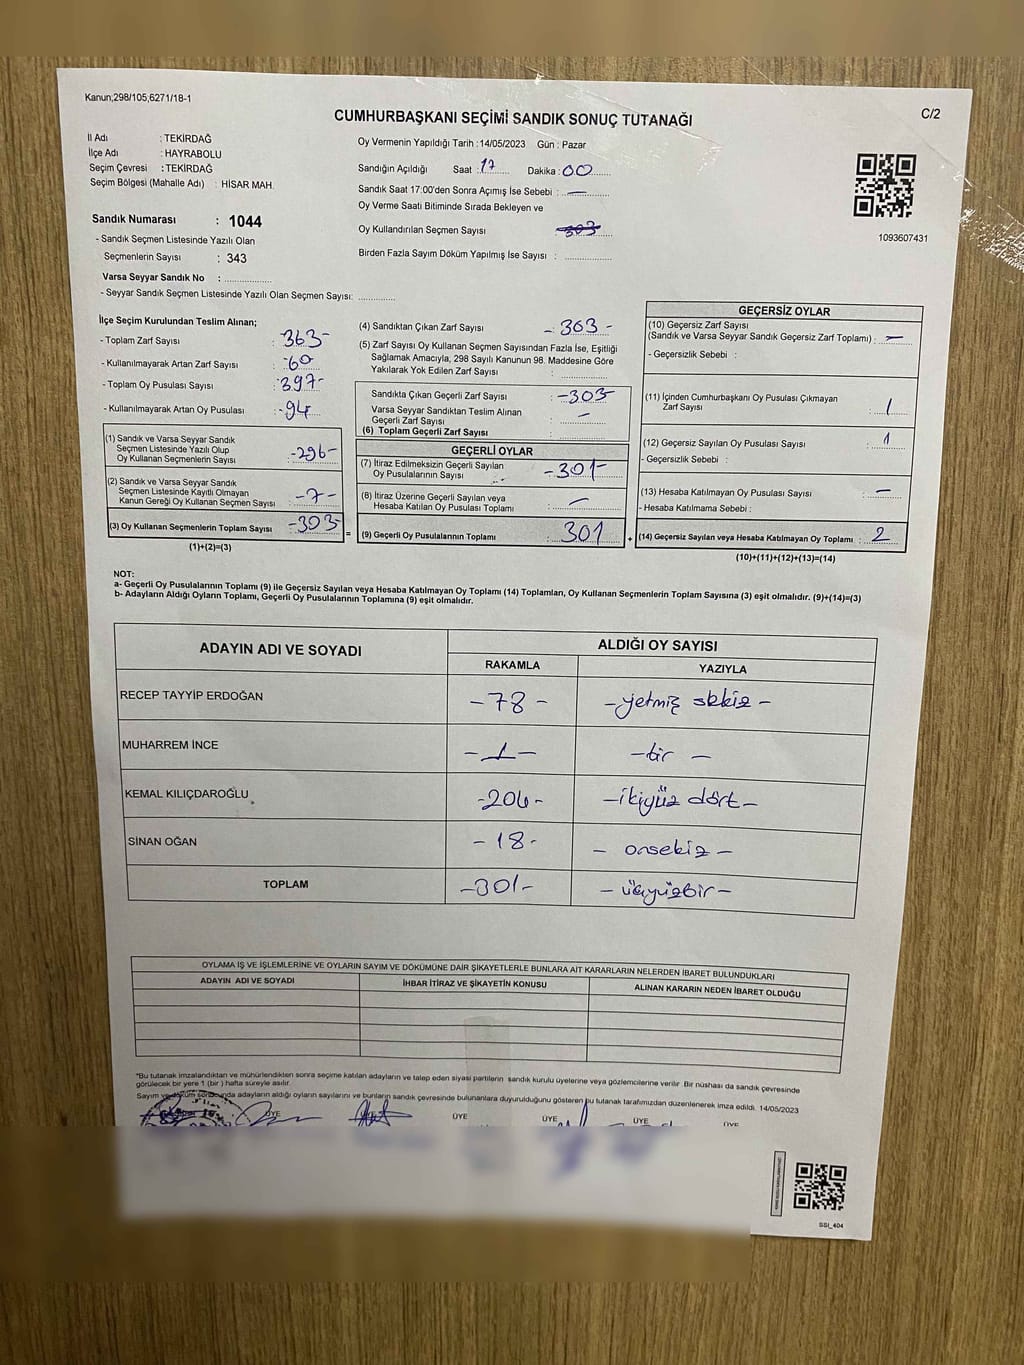 Kanun;298/105,6271/18-1
C/2
CUMHURBAŞKANI SEÇİMİ SANDIK SONUÇ TUTANAĞI
İl Adı : TEKİRDAĞ
İlçe Adı : HAYRABOLU
Seçim Çevresi : TEKİRDAĞ
Seçim Bölgesi (Mahalle Adı) : HİSAR MAH.
Sandık Numarası : 1044
- Sandık Seçmen Listesinde Yazılı Olan
Seçmenlerin Sayısı : 343
Varsa Seyyar Sandık No : ................
- Seyyar Sandık Seçmen Listesinde Yazılı Olan Seçmen Sayısı: ............
Oy Vermenin Yapıldığı Tarih : 14/05/2023 Gün : Pazar
Sandığın Açıldığı Saat : 17 Dakika : 00
Sandık Saat 17:00'den Sonra Açımış İse Sebebi : —
Oy Verme Saati Bitiminde Sırada Bekleyen ve
Oy Kullandırılan Seçmen Sayısı 303
Birden Fazla Sayım Döküm Yapılmış İse Sayısı : ................
1093607431
İlçe Seçim Kurulundan Teslim Alınan;
- Toplam Zarf Sayısı : 363-
- Kullanılmayarak Artan Zarf Sayısı : -60
- Toplam Oy Pusulası Sayısı : 397-
- Kullanılmayarak Artan Oy Pusulası : -94
(1) Sandık ve Varsa Seyyar Sandık
Seçmen Listesinde Yazılı Olup
Oy Kullanan Seçmenlerin Sayısı -296-
(2) Sandık ve Varsa Seyyar Sandık
Seçmen Listesinde Kayıtlı Olmayan
Kanun Gereği Oy Kullanan Seçmen Sayısı -7-
(3) Oy Kullanan Seçmenlerin Toplam Sayısı -303-
(1)+(2)=(3)
(4) Sandıktan Çıkan Zarf Sayısı - 303 -
(5) Zarf Sayısı Oy Kullanan Seçmen Sayısından Fazla İse, Eşitliği
Sağlamak Amacıyla, 298 Sayılı Kanunun 98. Maddesine Göre
Yakılarak Yok Edilen Zarf Sayısı
Sandıkta Çıkan Geçerli Zarf Sayısı : -303-
Varsa Seyyar Sandıktan Teslim Alınan
Geçerli Zarf Sayısı : —
(6) Toplam Geçerli Zarf Sayısı
GEÇERLİ OYLAR
(7) İtiraz Edilmeksizin Geçerli Sayılan
Oy Pusulalarının Sayısı -301-
(8) İtiraz Üzerine Geçerli Sayılan veya
Hesaba Katılan Oy Pusulası Toplamı —
= (9) Geçerli Oy Pusulalarının Toplamı : 301
GEÇERSİZ OYLAR
(10) Geçersiz Zarf Sayısı
(Sandık ve Varsa Seyyar Sandık Geçersiz Zarf Toplamı) : —
- Geçersizlik Sebebi :
(11) İçinden Cumhurbaşkanı Oy Pusulası Çıkmayan
Zarf Sayısı : 1
(12) Geçersiz Sayılan Oy Pusulası Sayısı : 1
- Geçersizlik Sebebi :
(13) Hesaba Katılmayan Oy Pusulası Sayısı : —
- Hesaba Katılmama Sebebi :
+ (14) Geçersiz Sayılan veya Hesaba Katılmayan Oy Toplamı : 2
(10)+(11)+(12)+(13)=(14)
NOT:
a- Geçerli Oy Pusulalarının Toplamı (9) ile Geçersiz Sayılan veya Hesaba Katılmayan Oy Toplamı (14) Toplamları, Oy Kullanan Seçmenlerin Toplam Sayısına (3) eşit olmalıdır. (9)+(14)=(3)
b- Adayların Aldığı Oyların Toplamı, Geçerli Oy Pusulalarının Toplamına (9) eşit olmalıdır.
ADAYIN ADI VE SOYADI ALDIĞI OY SAYISI
RAKAMLA YAZIYLA
RECEP TAYYİP ERDOĞAN -78- -yetmiş sekiz-
MUHARREM İNCE -1- -bir-
KEMAL KILIÇDAROĞLU -204- -ikiyüz dört-
SİNAN OĞAN -18- -onsekiz-
TOPLAM -301- -üçyüzbir-
OYLAMA İŞ VE İŞLEMLERİNE VE OYLARIN SAYIM VE DÖKÜMÜNE DAİR ŞİKAYETLERLE BUNLARA AİT KARARLARIN NELERDEN İBARET BULUNDUKLARI
ADAYIN ADI VE SOYADI İHBAR İTİRAZ VE ŞİKAYETİN KONUSU ALINAN KARARIN NEDEN İBARET OLDUĞU
*Bu tutanak imzalandıktan ve mühürlendikten sonra seçime katılan adayların ve talep eden siyasi partilerin sandık kurulu üyelerine veya gözlemcilerine verilir. Bir nüshası da sandık çevresinde
görülecek bir yere 1 (bir) hafta süreyle asılır.
Sayım ve döküm sonucunda adayların aldığı oyların sayılarını ve bunların sandık çevresinde bulunanlara duyurulduğunu gösteren bu tutanak tarafımızdan düzenlenerek imza edildi. 14/05/2023
ÜYE ÜYE ÜYE ÜYE ÜYE
SSİ_404